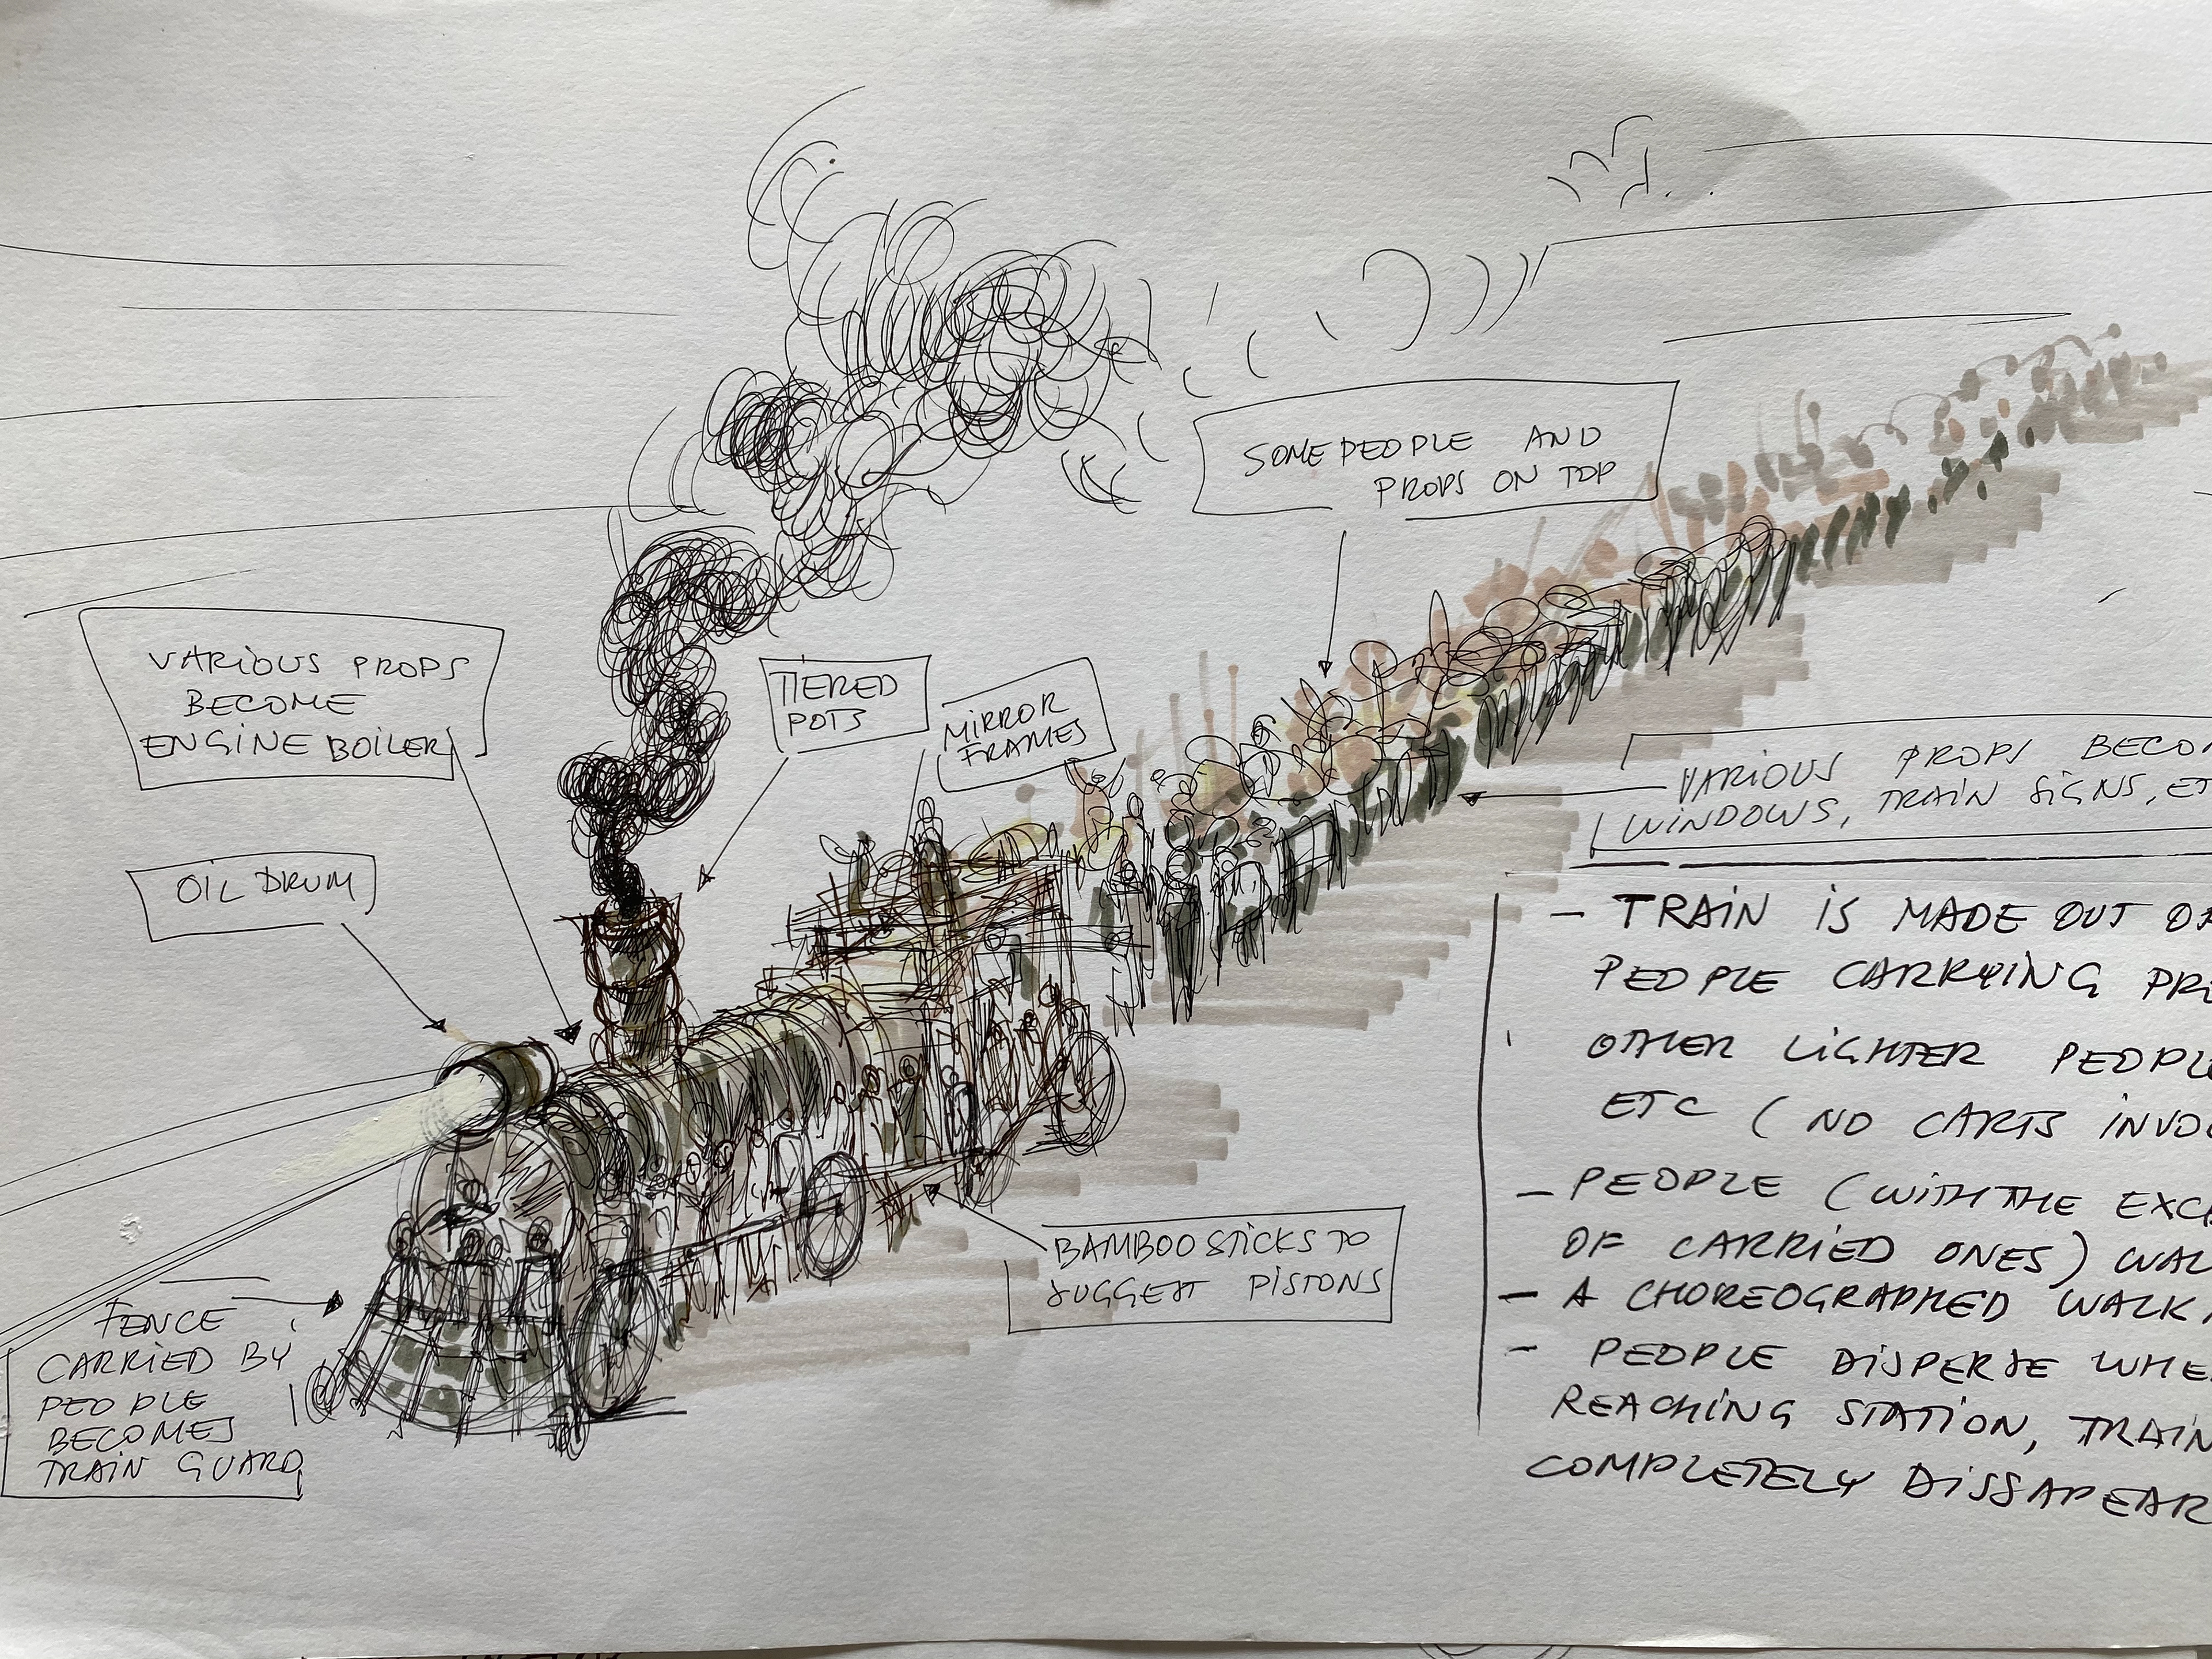 SOME PEOPLE AND
PROPS ON TOP
VARIOUS PROPS
BECOME
ENGINE BOILER
TIERED
POTS
MIRROR
FRAMES
OIL DRUM
VARIOUS PROPS BECO
WINDOWS, TRAIN SIGNS, ET
- TRAIN IS MADE OUT OF
PEOPLE CARRYING PR
OTHER LIGHTER PEOPLE
ETC (NO CARTS INVO
- PEOPLE (WITH THE EXC
OF CARRIED ONES) WAL
- A CHOREOGRAPHED WALK
- PEOPLE DISPERSE WHE
REACHING STATION, TRAIN
COMPLETELY DISSAPEAR
BAMBOO STICKS TO
SUGGEST PISTONS
FENCE
CARRIED BY
PEOPLE
BECOMES
TRAIN GUARD